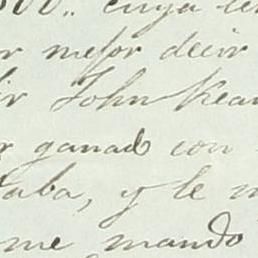 800.. cuya
r mejor decir
ir John Kear
r ganado con
taba, y le m
me mando